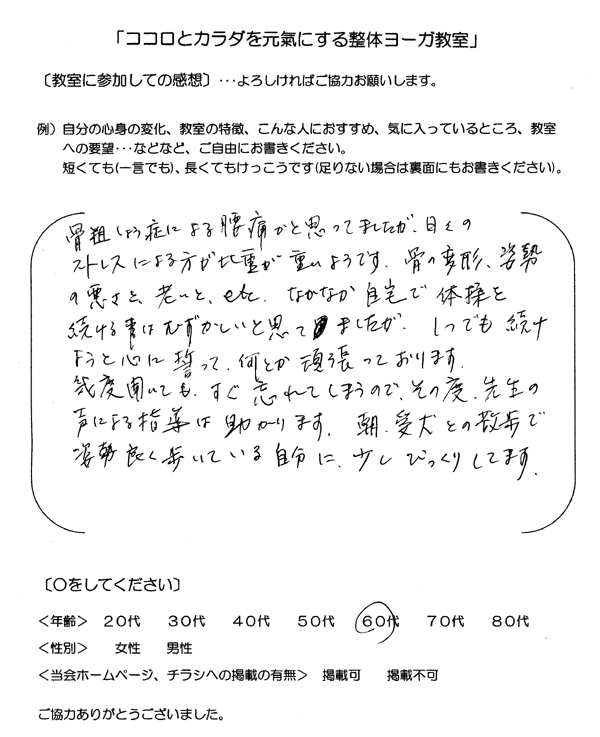 「ココロとカラダを元氣にする整体ヨーガ教室」
〔教室に参加しての感想〕・・・よろしければご協力お願いします。
例）自分の心身の変化、教室の特徴、こんな人におすすめ、気に入っているところ、教室
への要望・・・などなど、ご自由にお書きください。
短くても(一言でも)、長くてもけっこうです(足りない場合は裏面にもお書きください)。
骨粗しょう症による腰痛かと思ってましたが、日々の
ストレスによる方が比重が重いようです。骨の変形、姿勢
の悪さと、老いと、etc. なかなか自宅で体操を
続ける事はむずかしいと思て ましたが、1つでも続け
ようと心に誓って、何とか頑張っております。
幾度聞いても、すぐ忘れてしまうので、その度、先生の
声による指導は助かります。朝、愛犬との散歩で
姿勢良く歩いている自分に、少しびっくりしてます。
〔○をしてください〕
＜年齢＞ 20代 30代 40代 50代 60代 70代 80代
＜性別＞ 女性 男性
＜当会ホームページ、チラシへの掲載の有無＞ 掲載可 掲載不可
ご協力ありがとうございました。